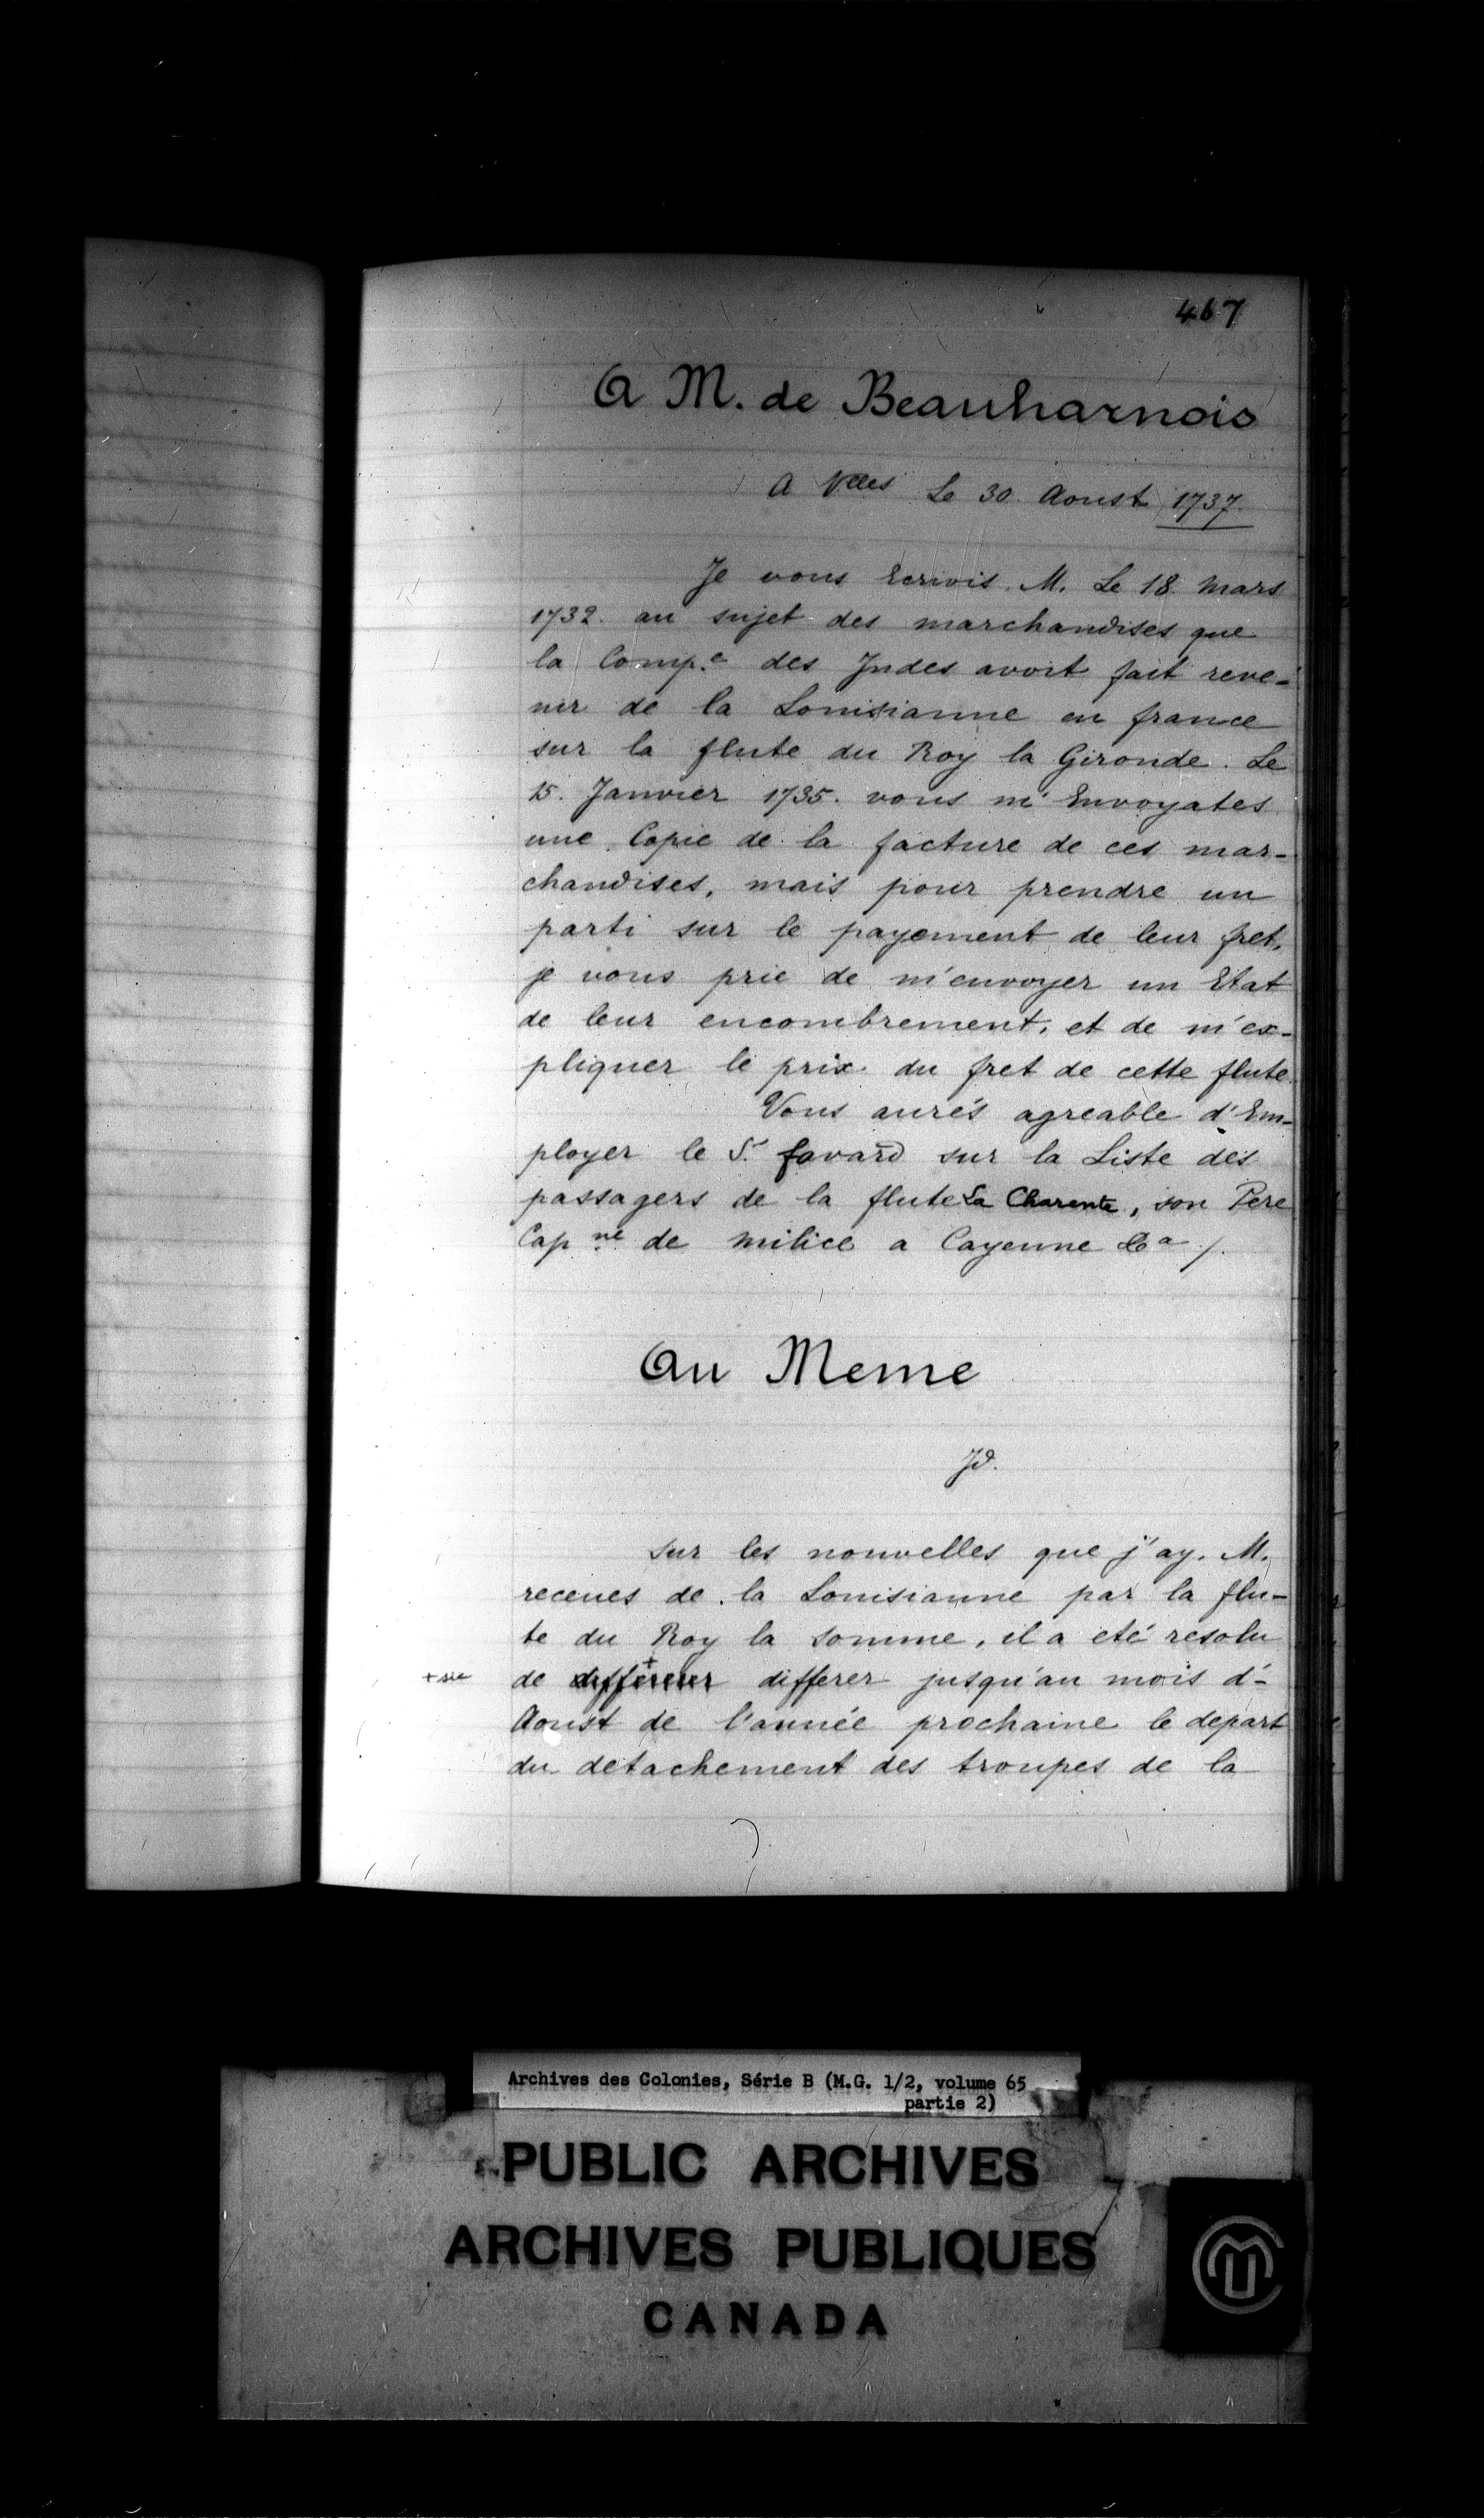 467
A M. de Beauharnois
A Vlles Le 30. Aoust 1737.
Je vous Ecrivis. M. Le 18. Mars
1732. au sujet des marchandises que
la Comp.e des Jndes avoit fait reve-
nir de la Louisianne en france
sur la flute du Roy la Gironde. Le
15. Janvier 1735. vous m'Envoyates
une Copie de la facture de ces mar-
chandises, mais pour prendre un
parti sur le payement de leur fret,
je vous prie de m'envoyer un Etat
de leur encombrement, et de m'ex-
pliquer le prix du fret de cette flute.
Vous aurés agreable d'Em-
ployer le S.r favard sur la Liste des
passagers de la flute La Charente, son Pere
Cap ne de milice a Cayenne &a /.
Au Meme
Jd.
Sur les nouvelles que j'ay. M.
receues de la Louisianne par la flu-
te du Roy la Somme, il a eté resolu
+ sic
de + differer jusqu'au mois d'-
Aoust de l'année prochaine le depart
du detachement des troupes de la
Archives des Colonies, Série B (M.G. 1/2, volume 65
partie 2)
PUBLIC ARCHIVES
ARCHIVES PUBLIQUES
CANADA